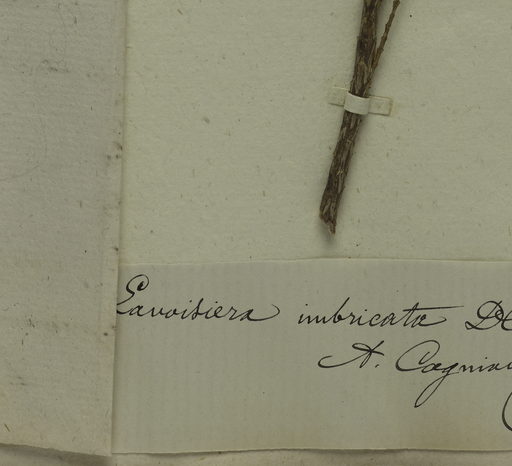 Lavoisiera imbricata DC
A. Cogniau